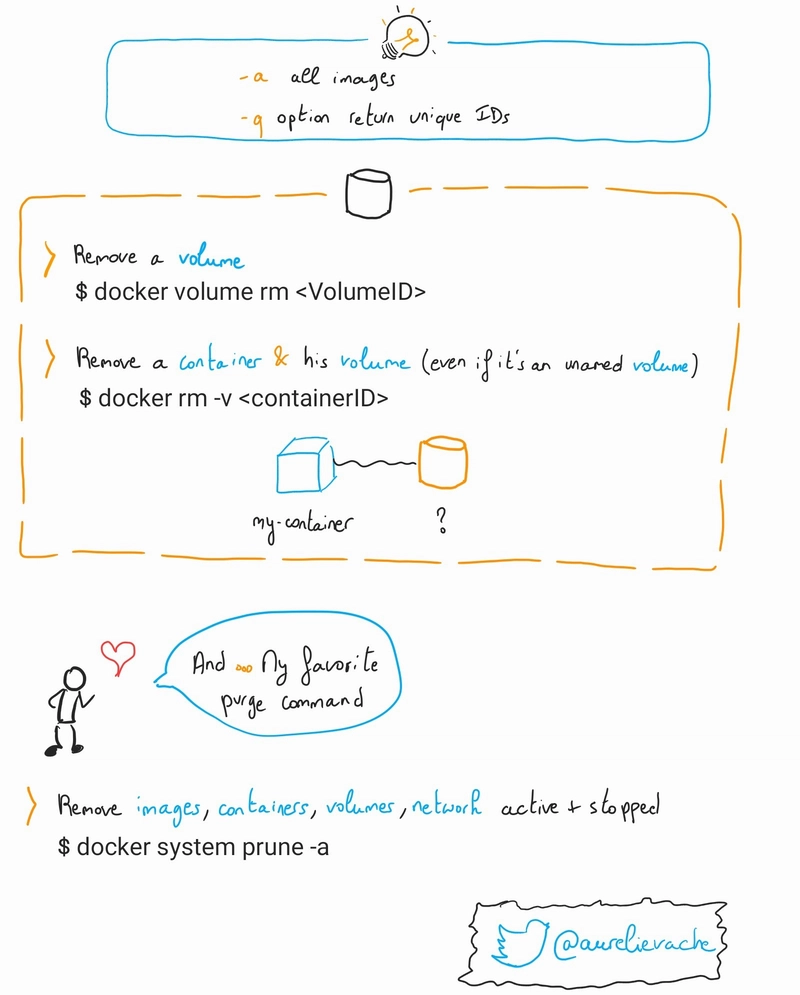 -a all images
-q option return unique IDs
> Remove a volume
$ docker volume rm <VolumeID>
> Remove a container & his volume (even if it's an unamed volume)
$ docker rm -v <containerID>
my-container
?
And ... My favorite
purge command
> Remove images, containers, volumes, network active + stopped
$ docker system prune -a
@aurelievache